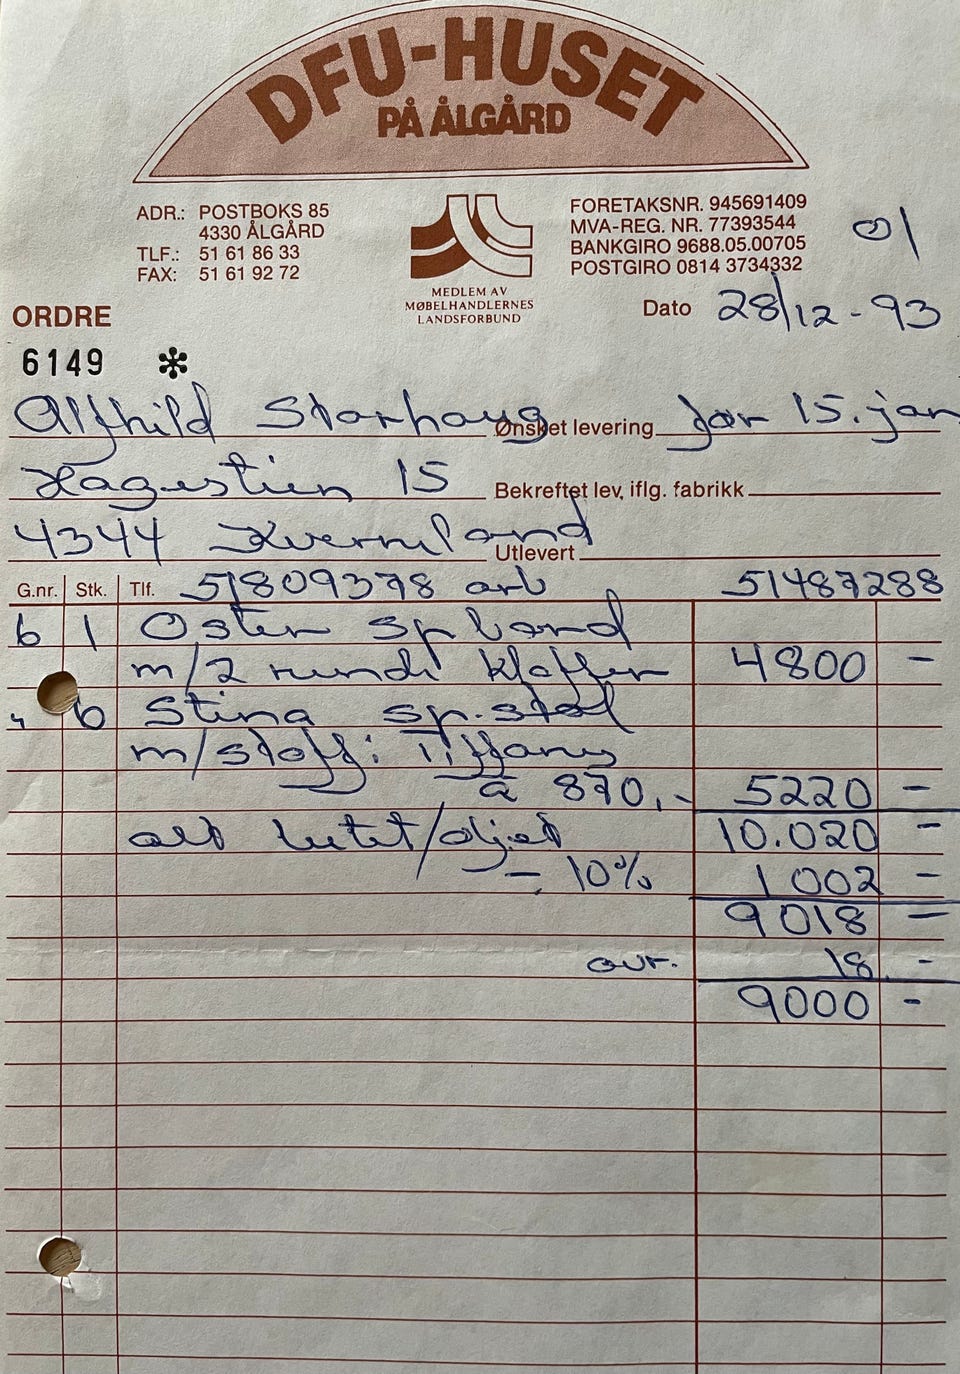 DFU-HUSET
PÅ ÅLGÅRD
ADR.: POSTBOKS 85
4330 ÅLGÅRD
TLF.: 51 61 86 33
FAX: 51 61 92 72
MEDLEM AV
MØBELHANDLERNES
LANDSFORBUND
FORETAKSNR. 945691409
MVA-REG. NR. 77393544
BANKGIRO 9688.05.00705
POSTGIRO 0814 3734332
01
Dato 28/12 - 93
ORDRE
6149 *
Alfhild Storhaug Ønsket levering før 15. jan
Hagestien 15 Bekreftet lev. iflg. fabrikk
4344 Kvernaland Utlevert
G.nr. Stk. Tlf. 51809378 arb 51487288
6 1 Osten sp.bord
m/2 runde klaffer 4800 -
" 6 Stina sp.stol
m/stoff: Tiffany
a 870,- 5220 -
alt lutet/oljet 10.020 -
- 10% 1 002 -
9018 -
avr. 18 -
9000 -